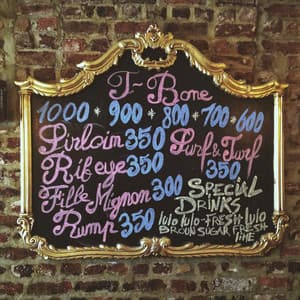 T-Bone
1000 * 900 * 800 * 700 * 600
Sirloin 350
Surf & Turf
350
Rib eye 350
Fille-Mignon 300
Rump 350
SPECIAL
DRINKS
lulo lulo-FRESH-lulo
BROUN SUGAR FRESH
LIME